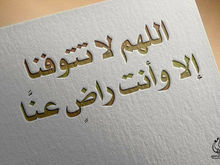 اللهم لا تتوفنا
إلا وأنت راضٍ عنا